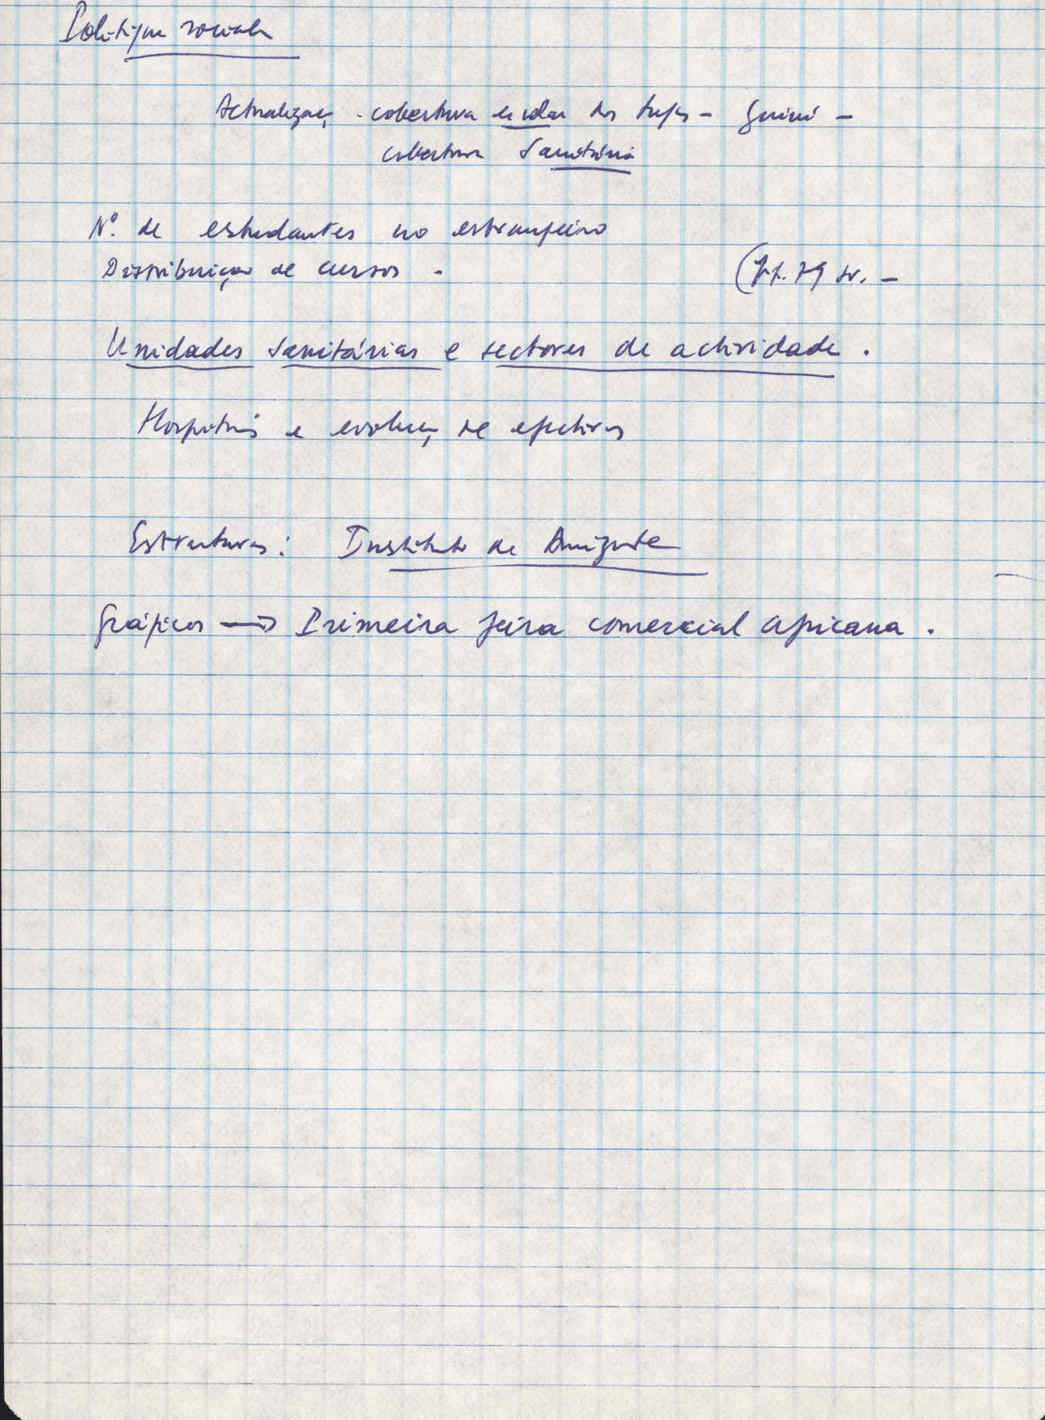 Politique sociale
Actualizaç. cobertura escolar dos - Guiné -
cobertura Sanitária
Nº. de estudantes no estrangeiro
Distribuição de cursos -
Unidades Sanitárias e sectores de actividade.
Hospitais e evoluç. de efectivos
Estruturas: Instituto de Amizade
Gráficos → Primeira feira comercial africana.